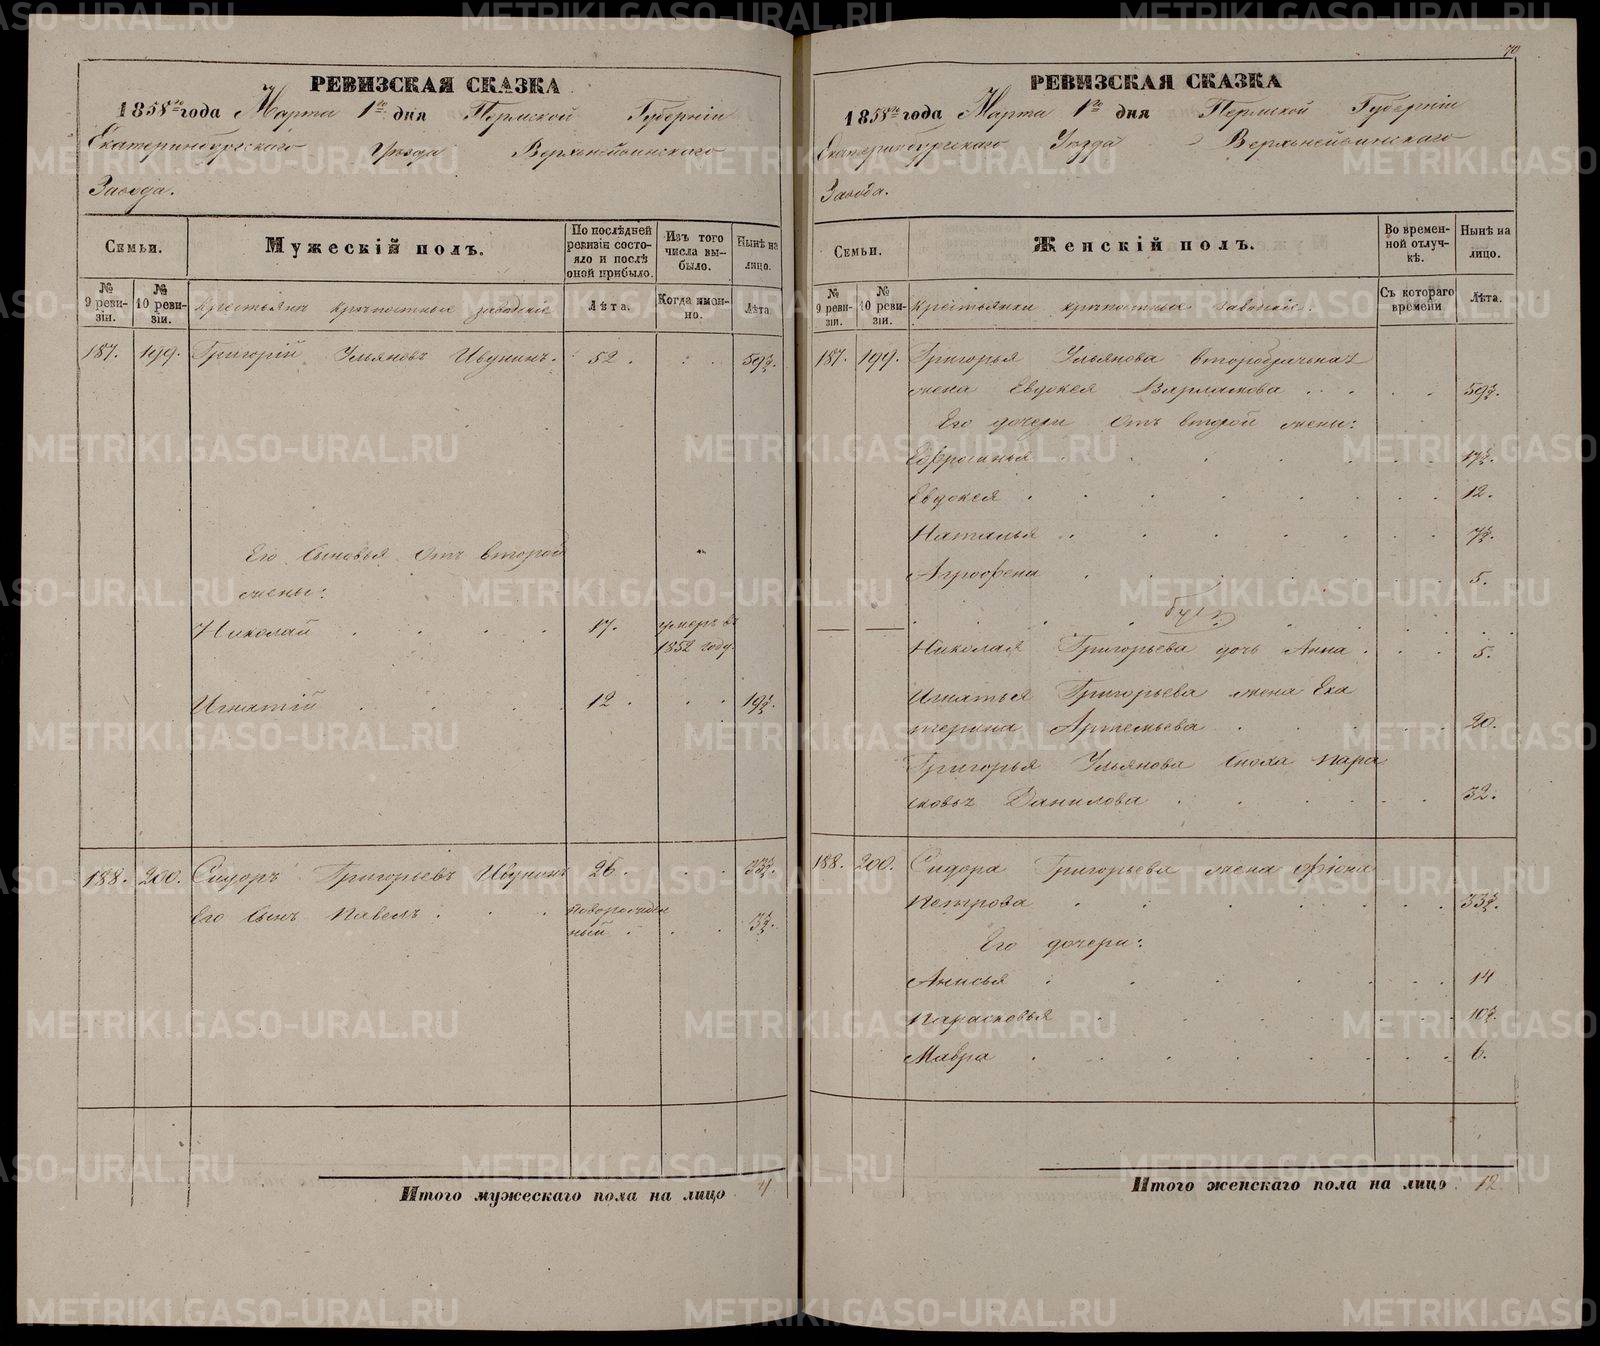 РЕВИЗСКАЯ СКАЗКА
1858го года Марта 1го дня Пермской Губерніи
Екатеринбургскаго Уѣзда Верхънейвинскаго
Завода.
Семьи.
Мужескій полъ.
По послѣдней ревизіи состояло и послѣ оной прибыло.
Изъ того числа выбыло.
Нынѣ на лицо.
№ 9 ревизіи.
№ 10 ревизіи.
Крестьянъ крѣпостные заводскіе
Лѣта.
Когда именно.
Лѣта
187. 199. Григорій Ульяновъ Ивунинъ. 52. 59½.
Его Сыновья отъ второй
жены:
Николай 17. умеръ въ
1852 году.
Игнатій 12. 19½.
188. 200. Сидоръ Григорьевъ Ивунинъ 26. 33½.
Его Сынъ Павелъ новорожден
ный 3½.
Итого мужескаго пола на лицо 4
70
РЕВИЗСКАЯ СКАЗКА
1858го года Марта 1го дня Пермской Губерніи
Екатеринбургскаго Уѣзда Верхънейвинскаго
Завода.
Семьи.
Женскій полъ.
Во временной отлучкѣ.
Нынѣ на лицо.
№ 9 ревизіи.
№ 10 ревизіи.
Крестьянки крѣпостные заводскіе.
Съ котораго времени
Лѣта.
187. 199. Григорья Ульянова второбрачная
жена Евдокея Варламова 59½.
Его дочери отъ второй жены:
Евфросинья 17½.
Евдокея 12.
Наталья 7½.
Агрофена 5.
Николая Григорьева дочь Анна 5.
Игнатья Григорьева жена Ека
терина Артемьева 20.
Григорья Ульянова Сноха Пара
сковья Данилова 32.
188. 200. Сидора Григорьева жена Фіона
Петрова 33½.
Его дочери:
Анисья 14
Парасковья 10½.
Мавра 6.
Итого женскаго пола на лицо 12
METRIKI.GASO-URAL.RU